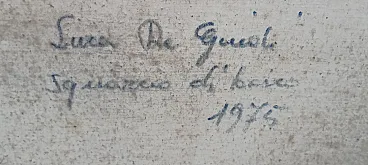 Luca De Guidi
squarcio di bosco
1975